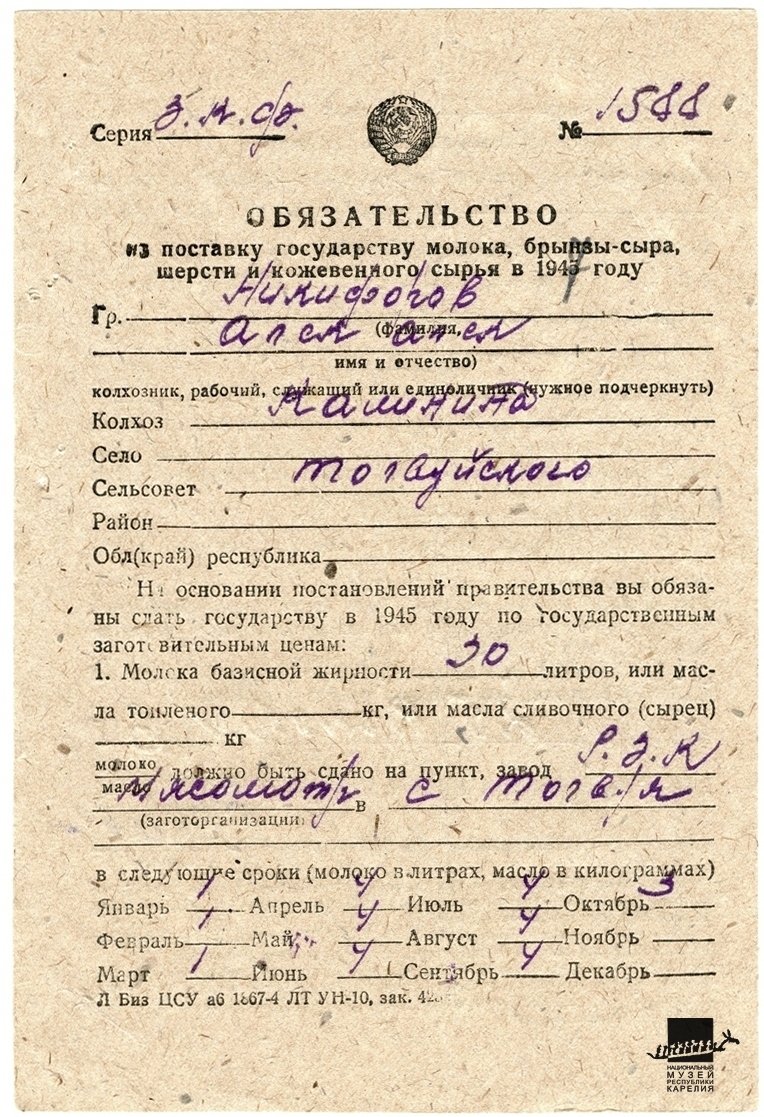 Серия З.К.ф. № 1588
ОБЯЗАТЕЛЬСТВО
на поставку государству молока, брынзы-сыра,
шерсти и кожевенного сырья в 1947 году
Гр. Никифоров
(фамилия,
Алек Алек
имя и отчество)
колхозник, рабочий, служащий или единоличник (нужное подчеркнуть)
Колхоз Калинина
Село
Сельсовет Толвуйского
Район
Обл(край) республика
На основании постановлений правительства вы обяза-
ны сдать государству в 1945 году по государственным
заготовительным ценам:
1. Молока базисной жирности 30 литров, или мас-
ла топленого кг, или масла сливочного (сырец)
кг
молоко
масло должно быть сдано на пункт, завод
в с Толвуя
(заготорганизации)
в следующие сроки (молоко в литрах, масло в килограммах)
Январь 1 Апрель 4 Июль 4 Октябрь 3
Февраль 1 Май 4 Август 4 Ноябрь
Март 1 Июнь 4 Сентябрь 4 Декабрь
Л Биз ЦСУ а6 1867-4 ЛТ УН-10, зак.
НАЦИОНАЛЬНЫЙ
МУЗЕЙ
РЕСПУБЛИКИ
КАРЕЛИЯ